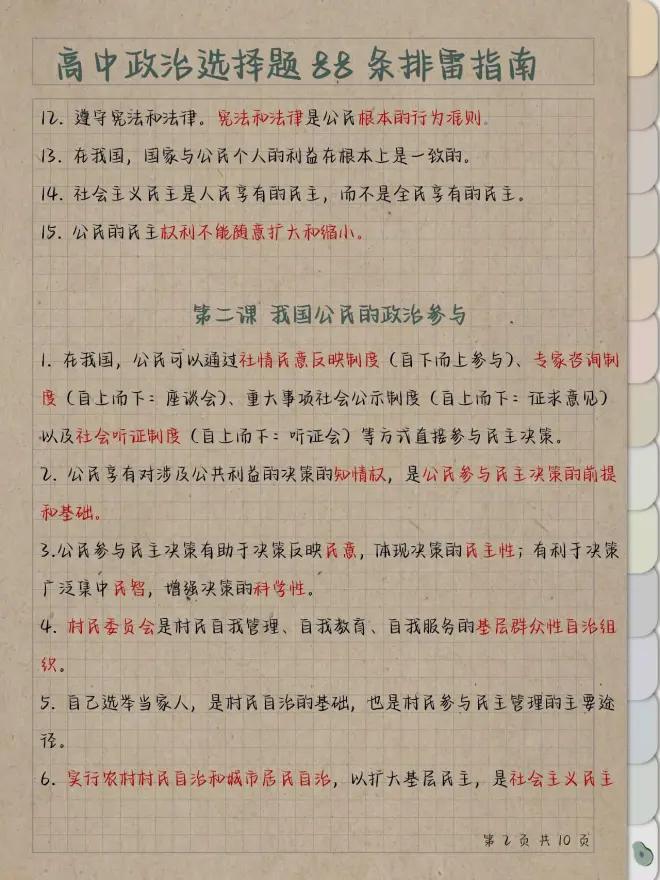 高中政治选择题88条排雷指南
12. 遵守宪法和法律。宪法和法律是公民根本的行为准则。
13. 在我国，国家与公民个人的利益在根本上是一致的。
14. 社会主义民主是人民享有的民主，而不是全民享有的民主。
15. 公民的民主权利不能随意扩大和缩小。
第二课 我国公民的政治参与
1. 在我国，公民可以通过社情民意反映制度（自下而上参与）、专家咨询制
度（自上而下：座谈会）、重大事项社会公示制度（自上而下：征求意见）
以及社会听证制度（自上而下：听证会）等方式直接参与民主决策。
2. 公民享有对涉及公共利益的决策的知情权，是公民参与民主决策的前提
和基础。
3.公民参与民主决策有助于决策反映民意，体现决策的民主性；有利于决策
广泛集中民智，增强决策的科学性。
4. 村民委员会是村民自我管理、自我教育、自我服务的基层群众性自治组
织。
5. 自己选举当家人，是村民自治的基础，也是村民参与民主管理的主要途
径。
6. 实行农村村民自治和城市居民自治，以扩大基层民主，是社会主义民主
第 2 页 共 10 页